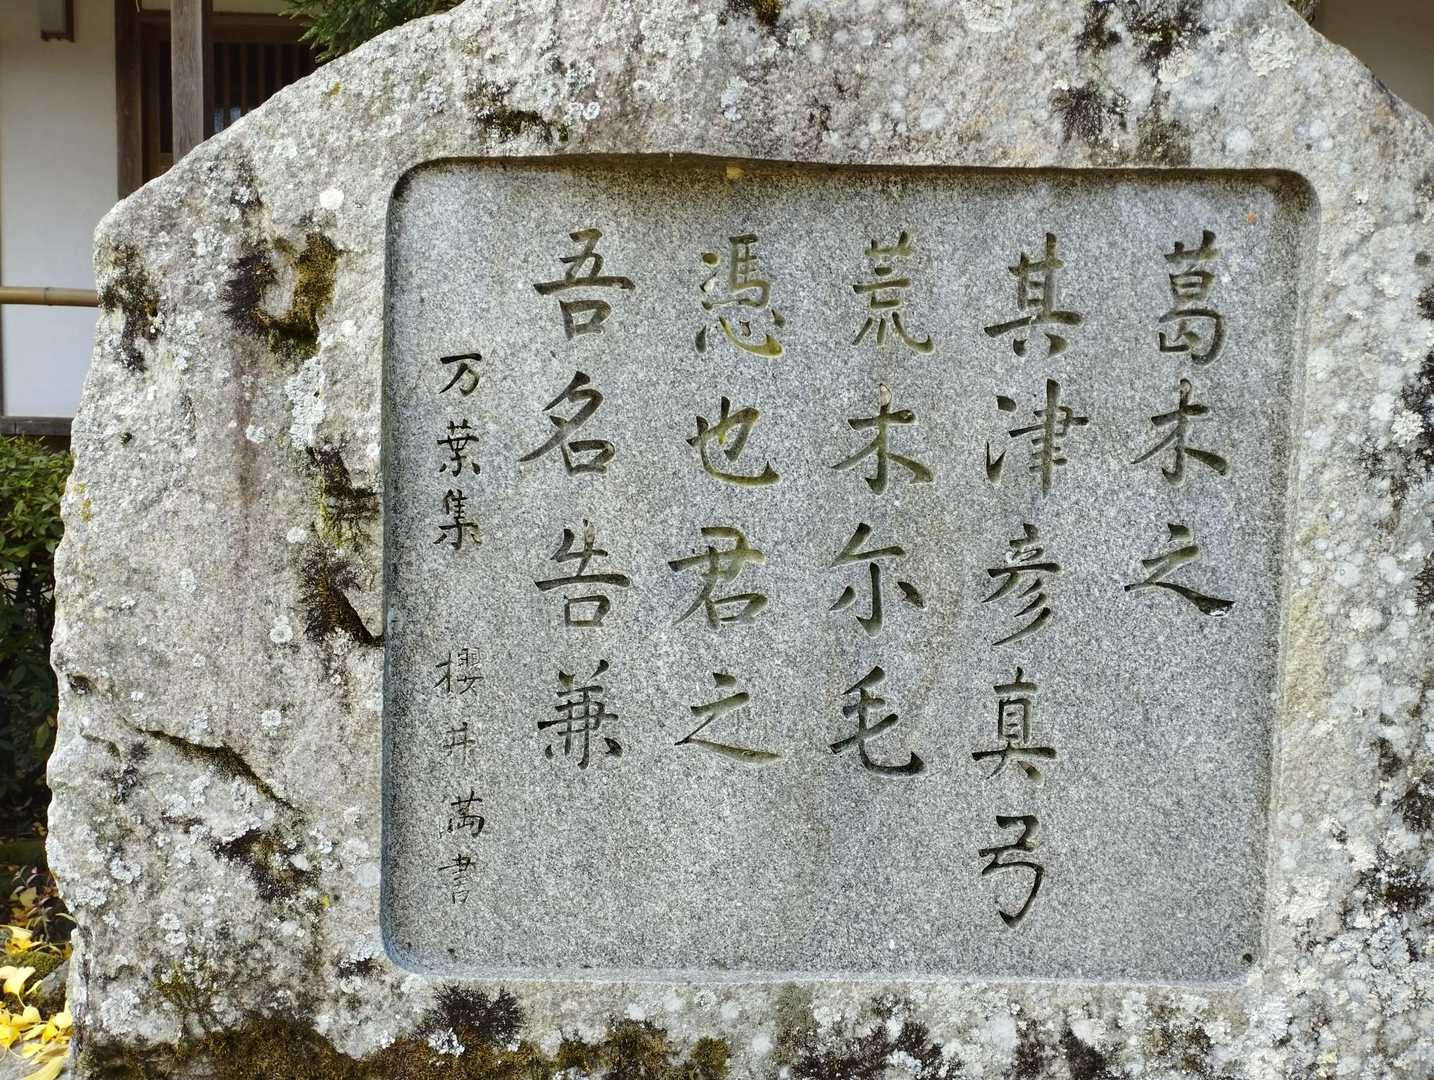 葛木之
其津彦真弓
荒木尓毛
憑也君之
吾名告兼
万葉集 櫻井満書